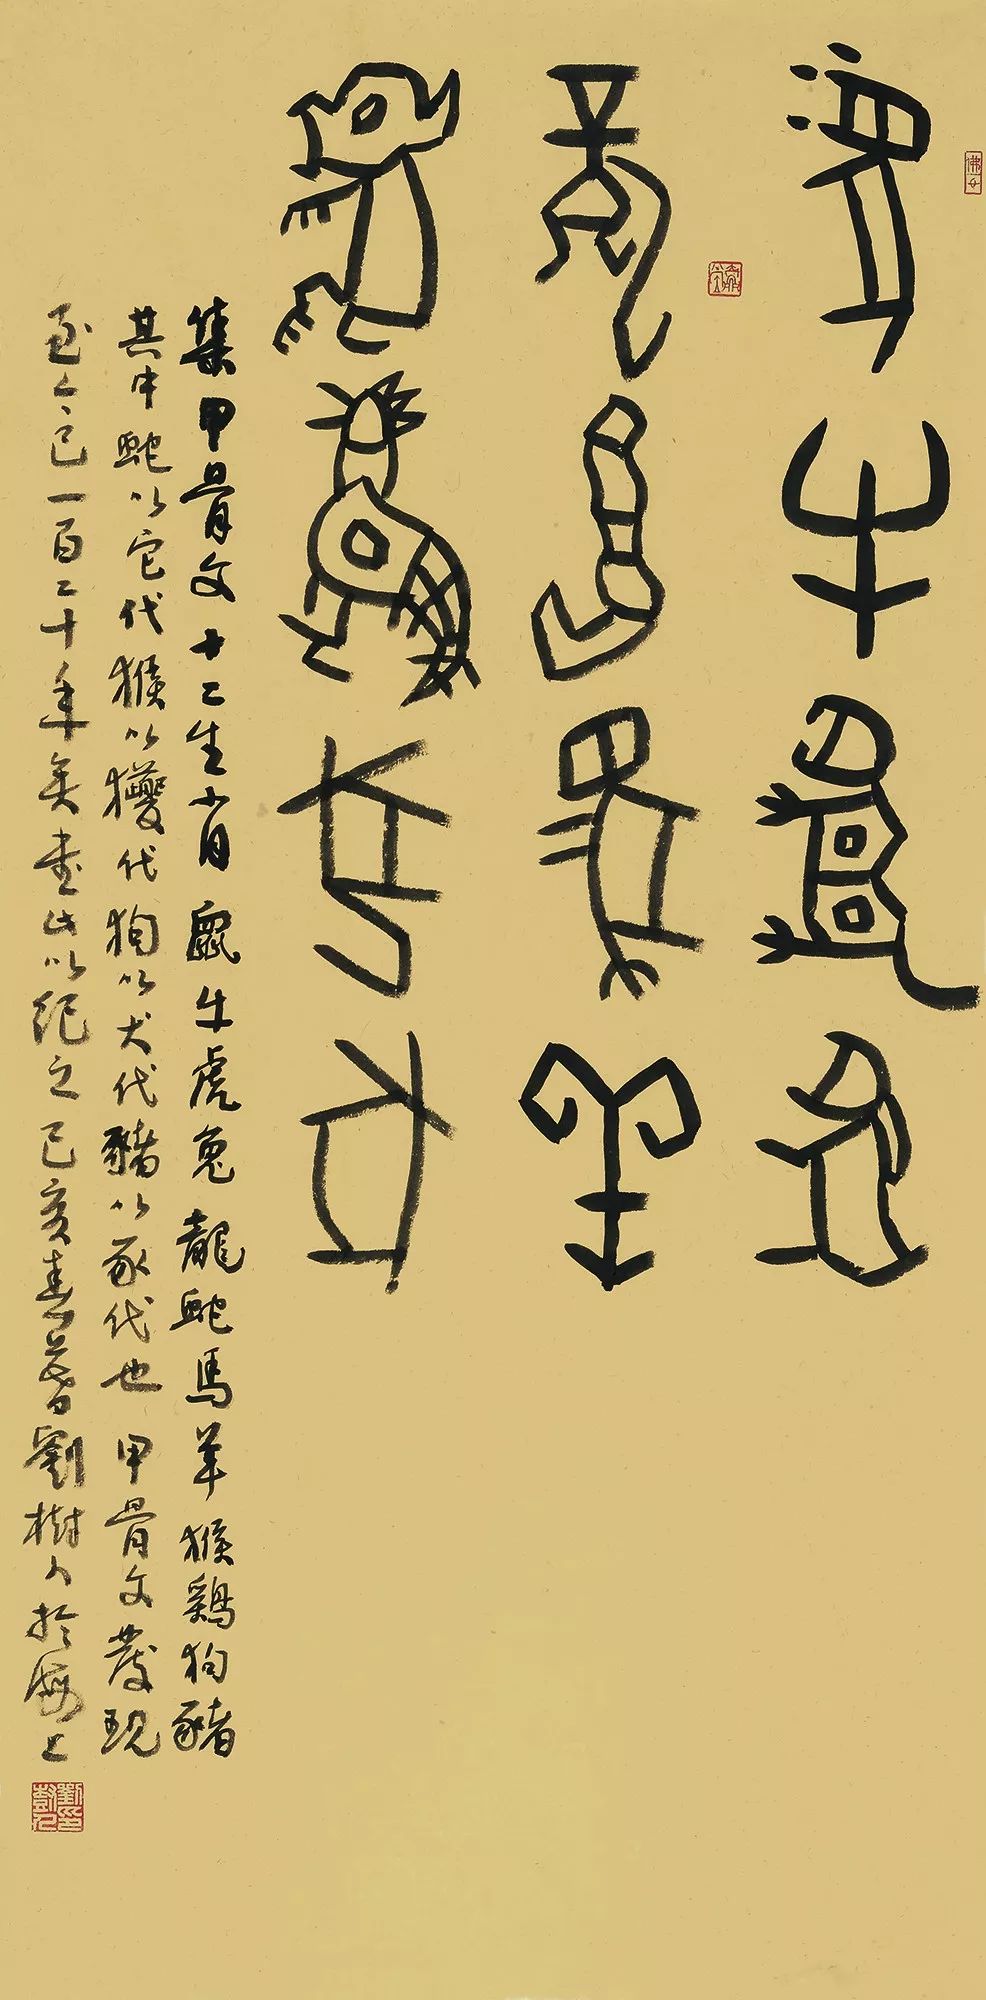 鼠牛虎兔
龍它馬羊
夒雞犬豕
集甲骨文十二生肖鼠牛虎兔龍蛇馬羊猴鷄狗豬
其中蛇以它代猴以獿代狗以犬代豬以豕代也甲骨文發現
至今已一百二十年矣書此以紀之己亥春暮劉樹人於海上